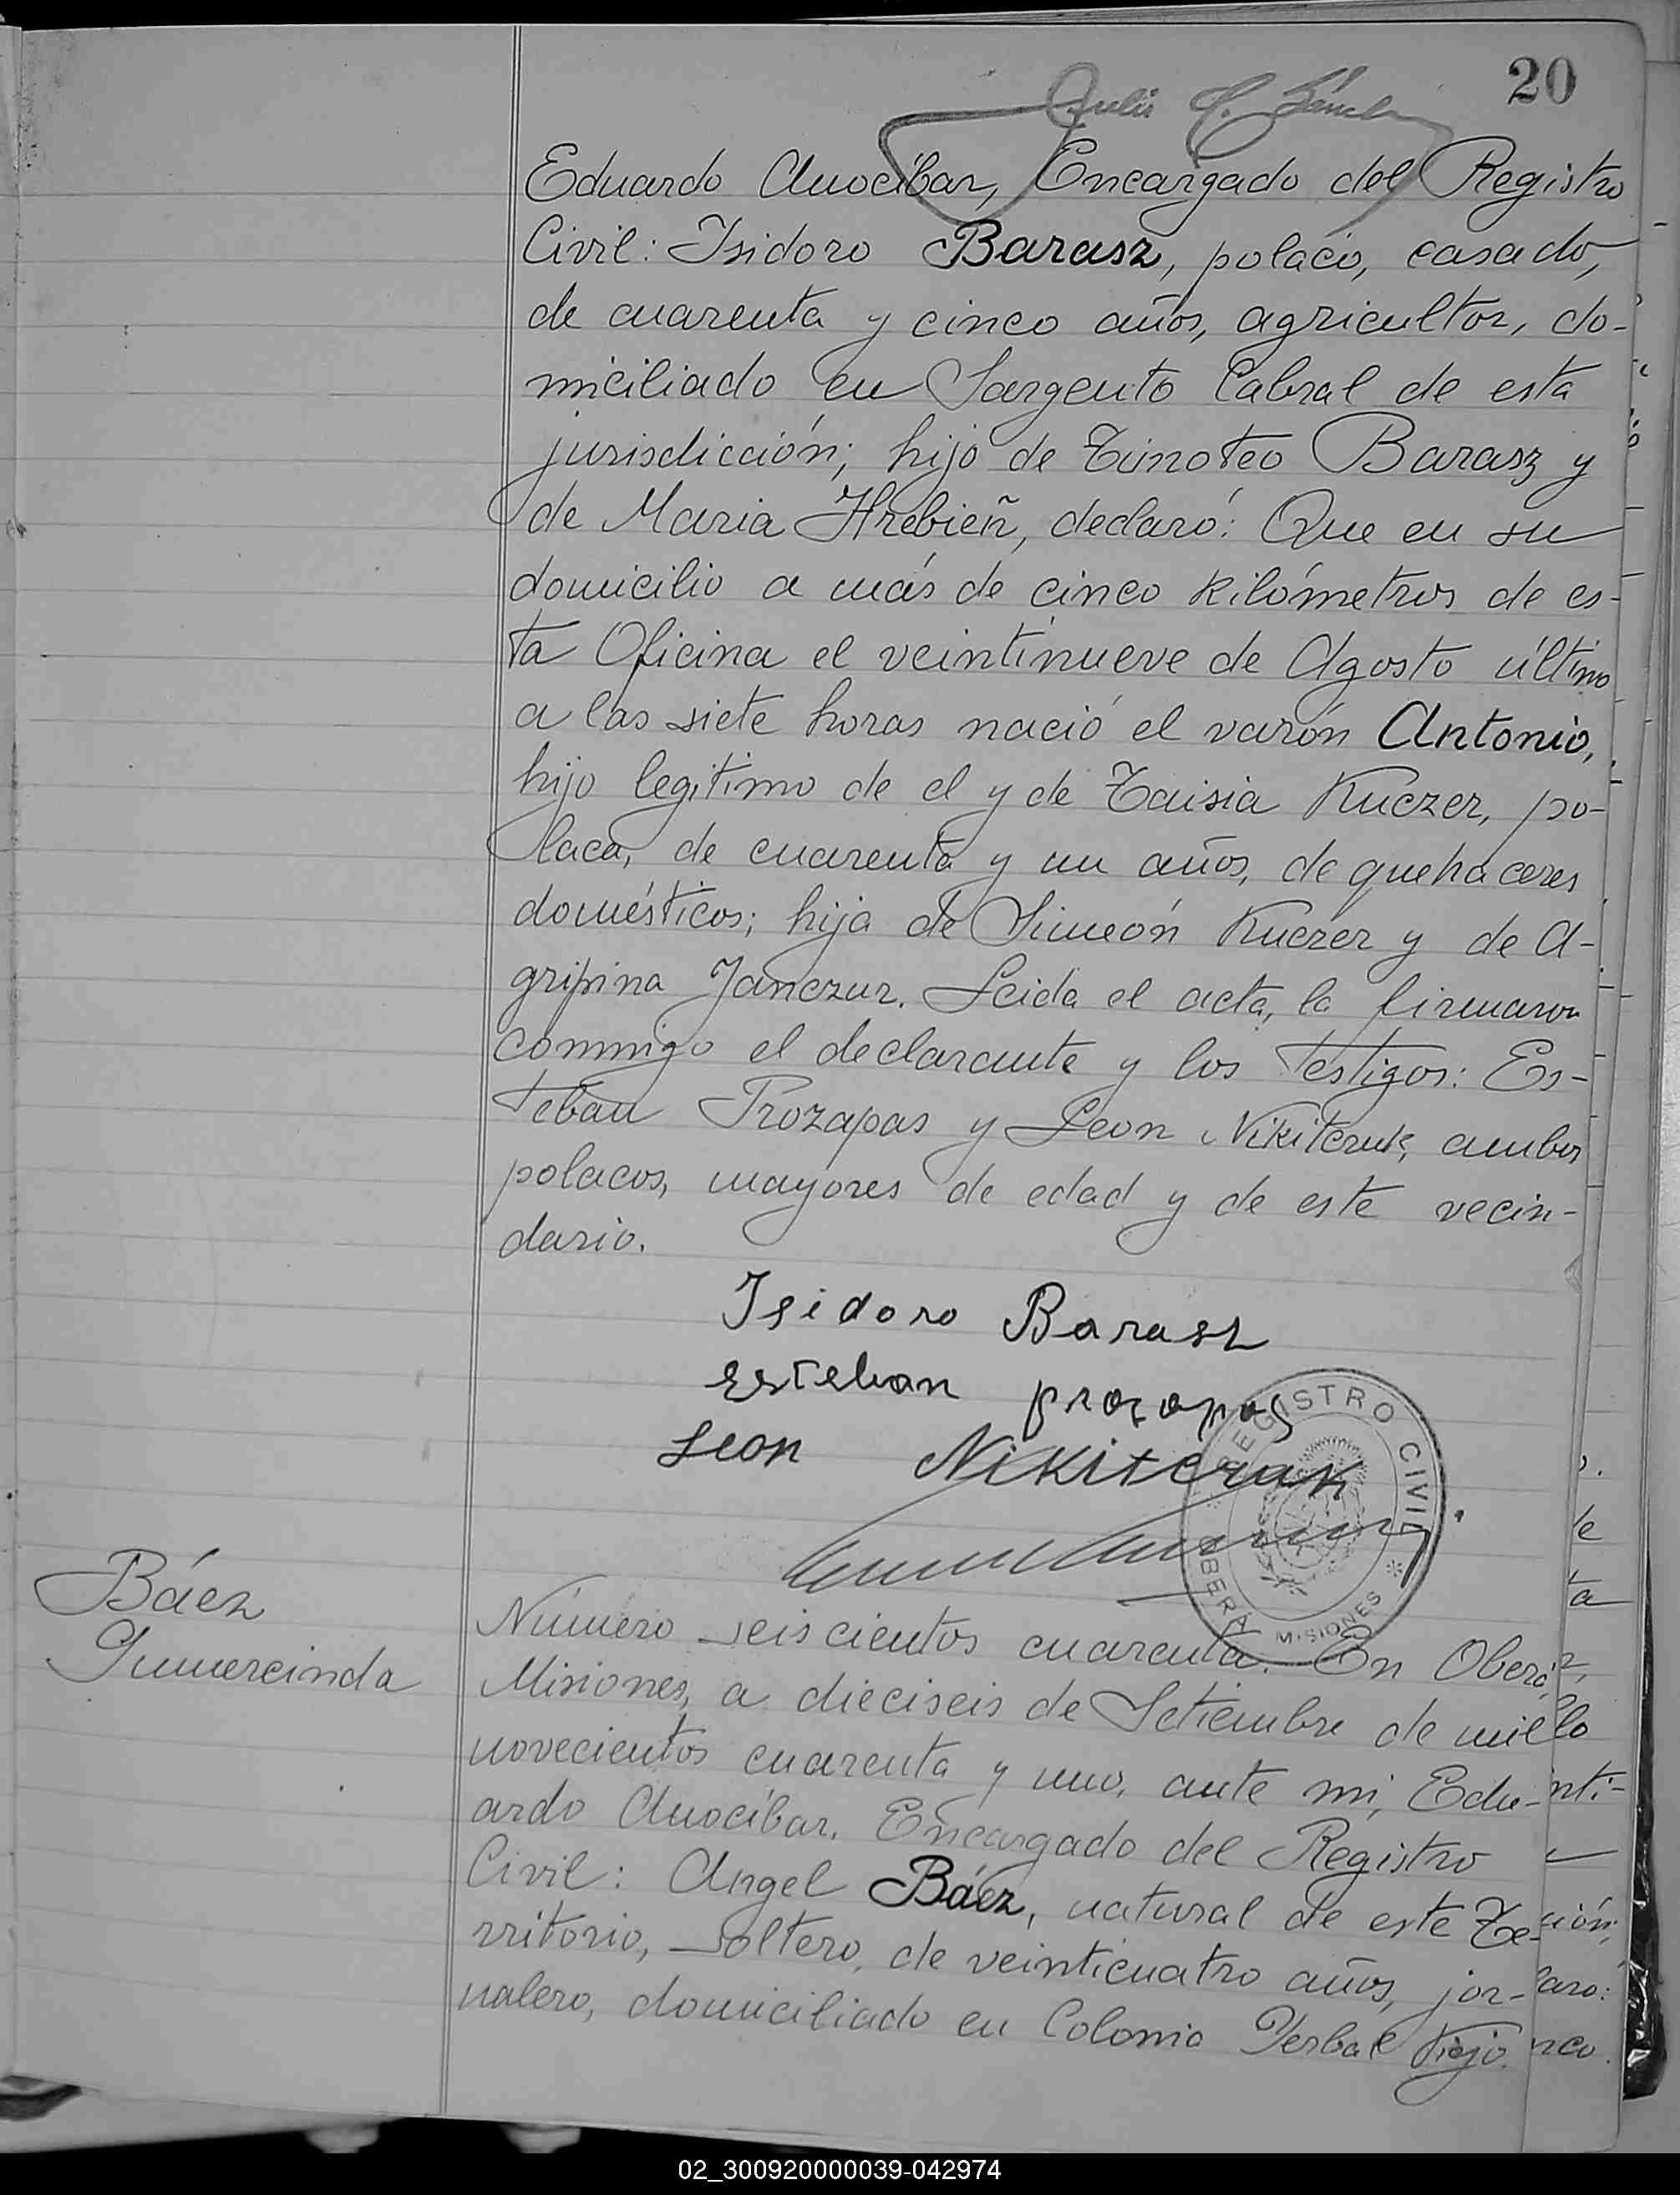 20
Eduardo Anocíbar, Encargado del Registro
Civil: Isidoro Barasz, polaco, casado,
de cuarenta y cinco años, agricultor, do-
miciliado en Sargento Cabral de esta
jurisdicción; hijo de Timoteo Barasz y
de Maria Hrebieñ, declaró: Que en su
domicilio a más de cinco kilómetros de es-
ta Oficina el veintinueve de Agosto último
a las siete horas nació el varón Antonio,
hijo legítimo de el y de Taisia Kuczer, po-
laca, de cuarenta y un años, de quehaceres
domésticos; hija de Simeón Kuczer y de A-
gripina Janczur. Leida el acta, la firmaron
conmigo el declarante y los testigos: Es-
teban Prozapas y Leon Nikiteruk, ambos
polacos, mayores de edad y de este vecin-
dario.
Isidoro Barasz
Esteban prozopas
Leon Nikiteruk
REGISTRO CIVIL
OBERÁ MISIONES
Báez
Gumercinda
Número seiscientos cuarenta. En Oberá,
Misiones, a dieciseis de Setiembre de mil
novecientos cuarenta y uno, ante mi, Edu-
ardo Anocíbar, Encargado del Registro
Civil: Angel Báez, natural de este Te-
rritorio, soltero, de veinticuatro años, jor-
nalero, domiciliado en Colonia Yerbal Viejo.
02_300920000039-042974